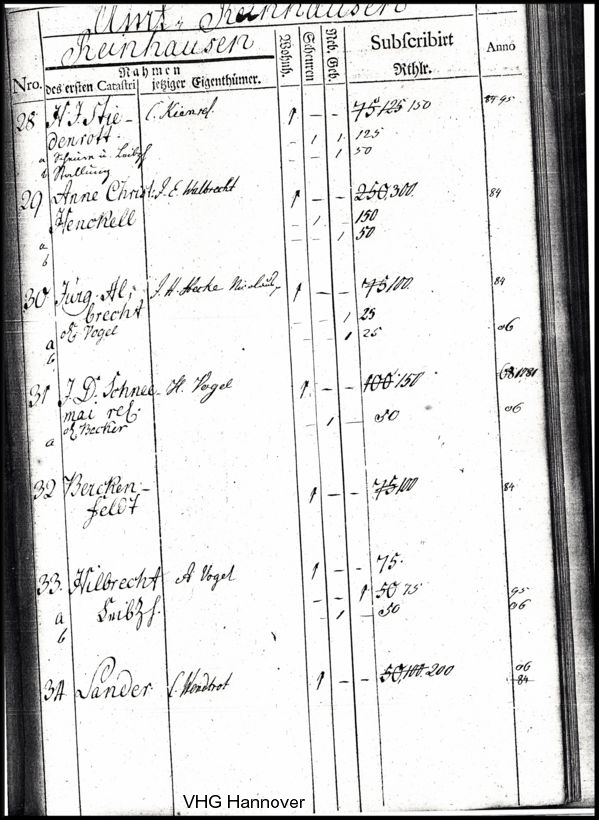 Amt, Reinhausen
Reinhausen
Nro. Nahmen Wohnh. Scheuren Neb. Geb. Subscribirt Anno
des ersten Catastri jetziger Eigenthümer. Rthlr.
28 H. J. Stie- C. Kienrel. 1 – – 75 125 150 84 95
denrott.
a Scheure u. Leibzf – 1 1 125
b Stallung – – 1 50
29 Anne Christ. J. E. Wilbrecht 1 – – 250, 300. 84
Henckell – 1 – 150
a – – 1 50
b
30 Jürg Al, J. H. Hecke 1 – – 75 100. 84
brecht – – 1 25
Vogel – – 1 25 06
a
b
31 J. D. Schnee- H. Vogel 1 – – 100 150
mai rel. – 1 – 50 06
Becker
a
32 Bercken- 1 – – 75 100 84
feldt
33. Hilbrecht A Vogel 1 – – 75.
a Leibzf. – – 1 50 75 95
b – 1 – 50 06
34 Sander C. Wendtrot 1 – – 50, 100. 200 06
84
VHG Hannover